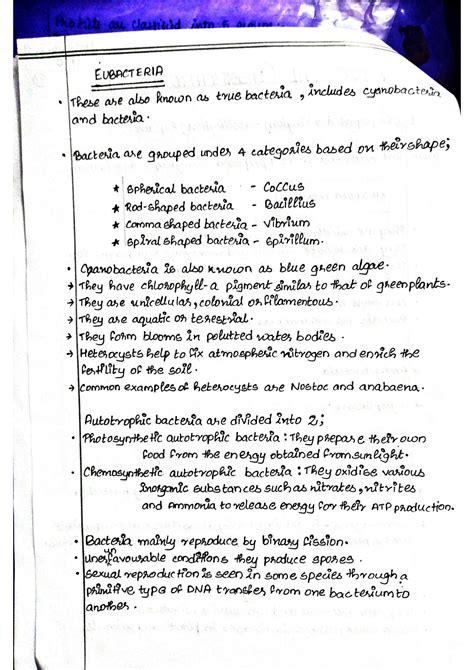 Protists are classified into 5 groups
EUBACTERIA
• These are also known as true bacteria, includes cyanobacteria
and bacteria.
• Bacteria are grouped under 4 categories based on their shape;
★ Spherical bacteria - Coccus
★ Rod-shaped bacteria - Bacillius
★ Comma shaped bacteria - Vibrium
★ Spiral shaped bacteria - Spirillum.
• Cyanobacteria is also known as blue green algae.
→ They have chlorophyll-a pigment similar to that of green plants.
→ They are unicellular, colonial or filamentous.
→ They are aquatic or terestrial.
→ They form blooms in polutted water bodies.
→ Heterocysts help to fix atmospheric nitrogen and enrich the
fertility of the soil.
→ Common examples of heterocysts are Nostoc and anabaena.
Autotrophic bacteria are divided into 2;
• Photosynthetic autotrophic bacteria: They prepare their own
food from the energy obtained from sunlight.
• Chemosynthetic autotrophic bacteria: They oxidise various
inorganic substances such as nitrates, nitrites
and Ammonia to release energy for their ATP production.
• Bacteria mainly reproduce by binary fission.
• In unfavourable conditions they produce spores.
• Sexual reproduction is seen in some species through a
primitive type of DNA transfer from one bacterium to
another.